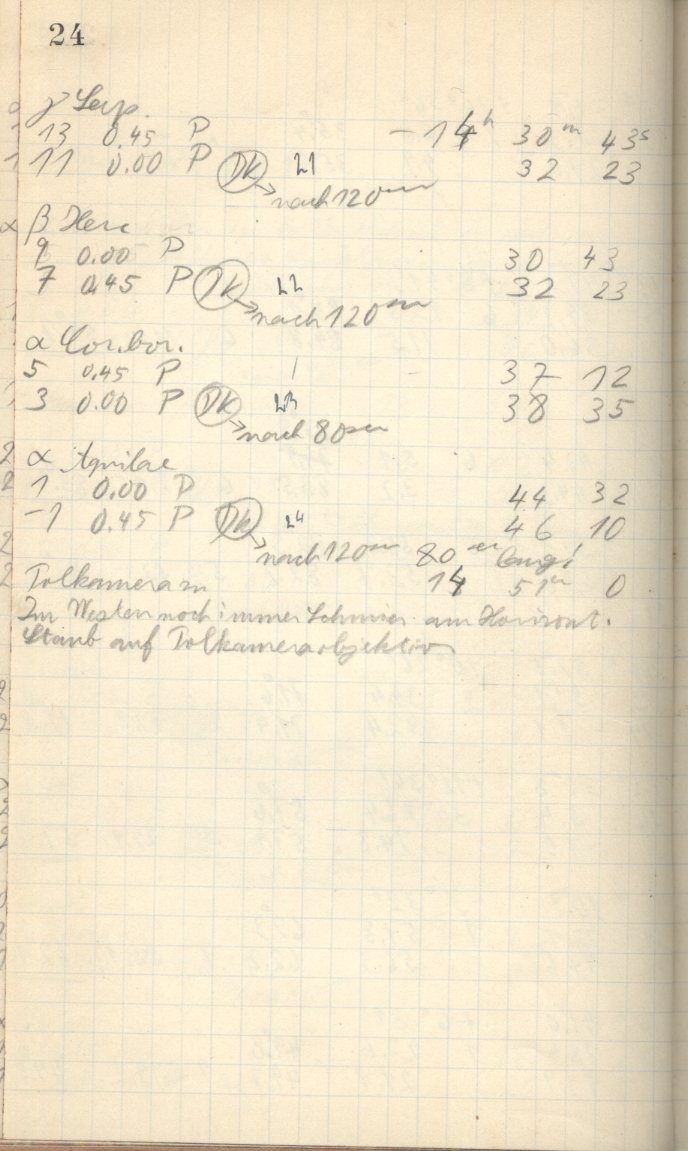 24
γ Serp.
13 0.45 P – 14h 30m 43s
11 0.00 P DK 21 32 23
nach 120 sec
β Herc
9 0.00 P 30 43
7 0.45 P DK 22 32 23
nach 120 sec
α Cor. bor.
5 0.45 P 37 12
3 0.00 P DK 23 38 35
nach 80 sec
α Aquilae
1 0.00 P 44 32
-1 0.45 P DK 24 46 10
nach 120 sec 80 sec lang!
Polkamera zu 14 51m 0
Im Westen noch immer Schmier am Horizont.
Staub auf Polkameraobjektiv